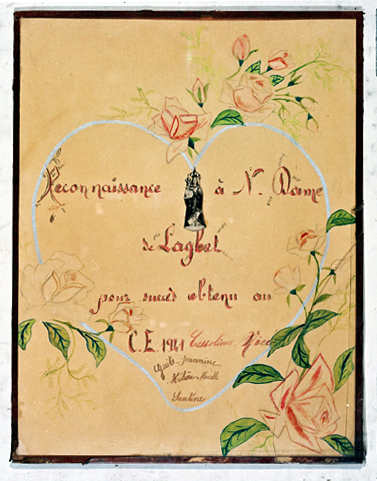 Reconnaissance à N. Dame
de Laghet
pour succès obtenu au
C.E. 1941 Nice
Jeannine